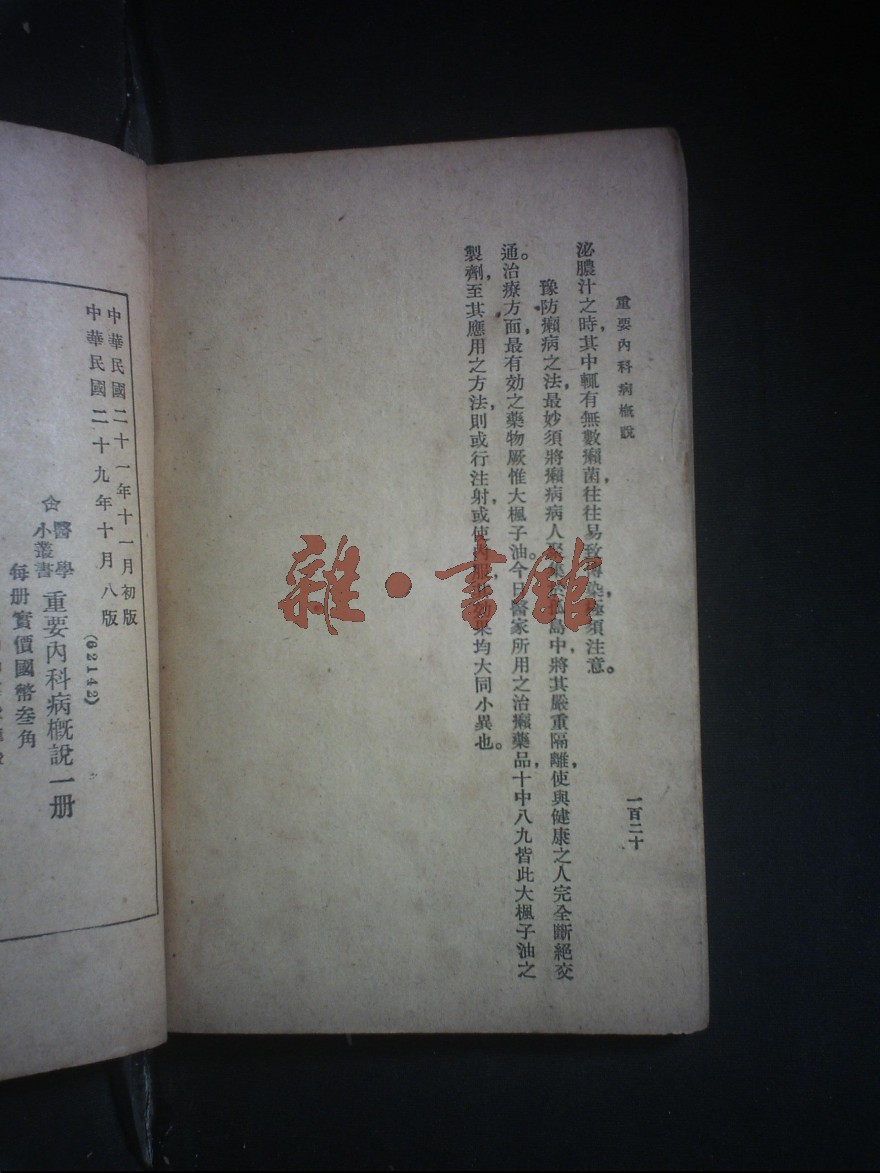 重要內科病概說
一百二十
泌膿汁之時，其中輒有無數癩菌，往往易致傳染，極須注意。
豫防癩病之法，最妙須將癩病病人聚集孤島中，將其嚴重隔離，使與健康之人完全斷絕交
通。治療方面，最有効之藥物，厥惟大楓子油。今日醫家所用之治癩藥品，十中八九皆此大楓子油之
製劑，至其應用之方法，則或行注射，或使內服，其効果均大同小異也。
雜·書館
中華民國二十一年十一月初版
中華民國二十九年十月八版
(62142)
醫學
小叢書
重要內科病概說一册
每册實價國幣叁角